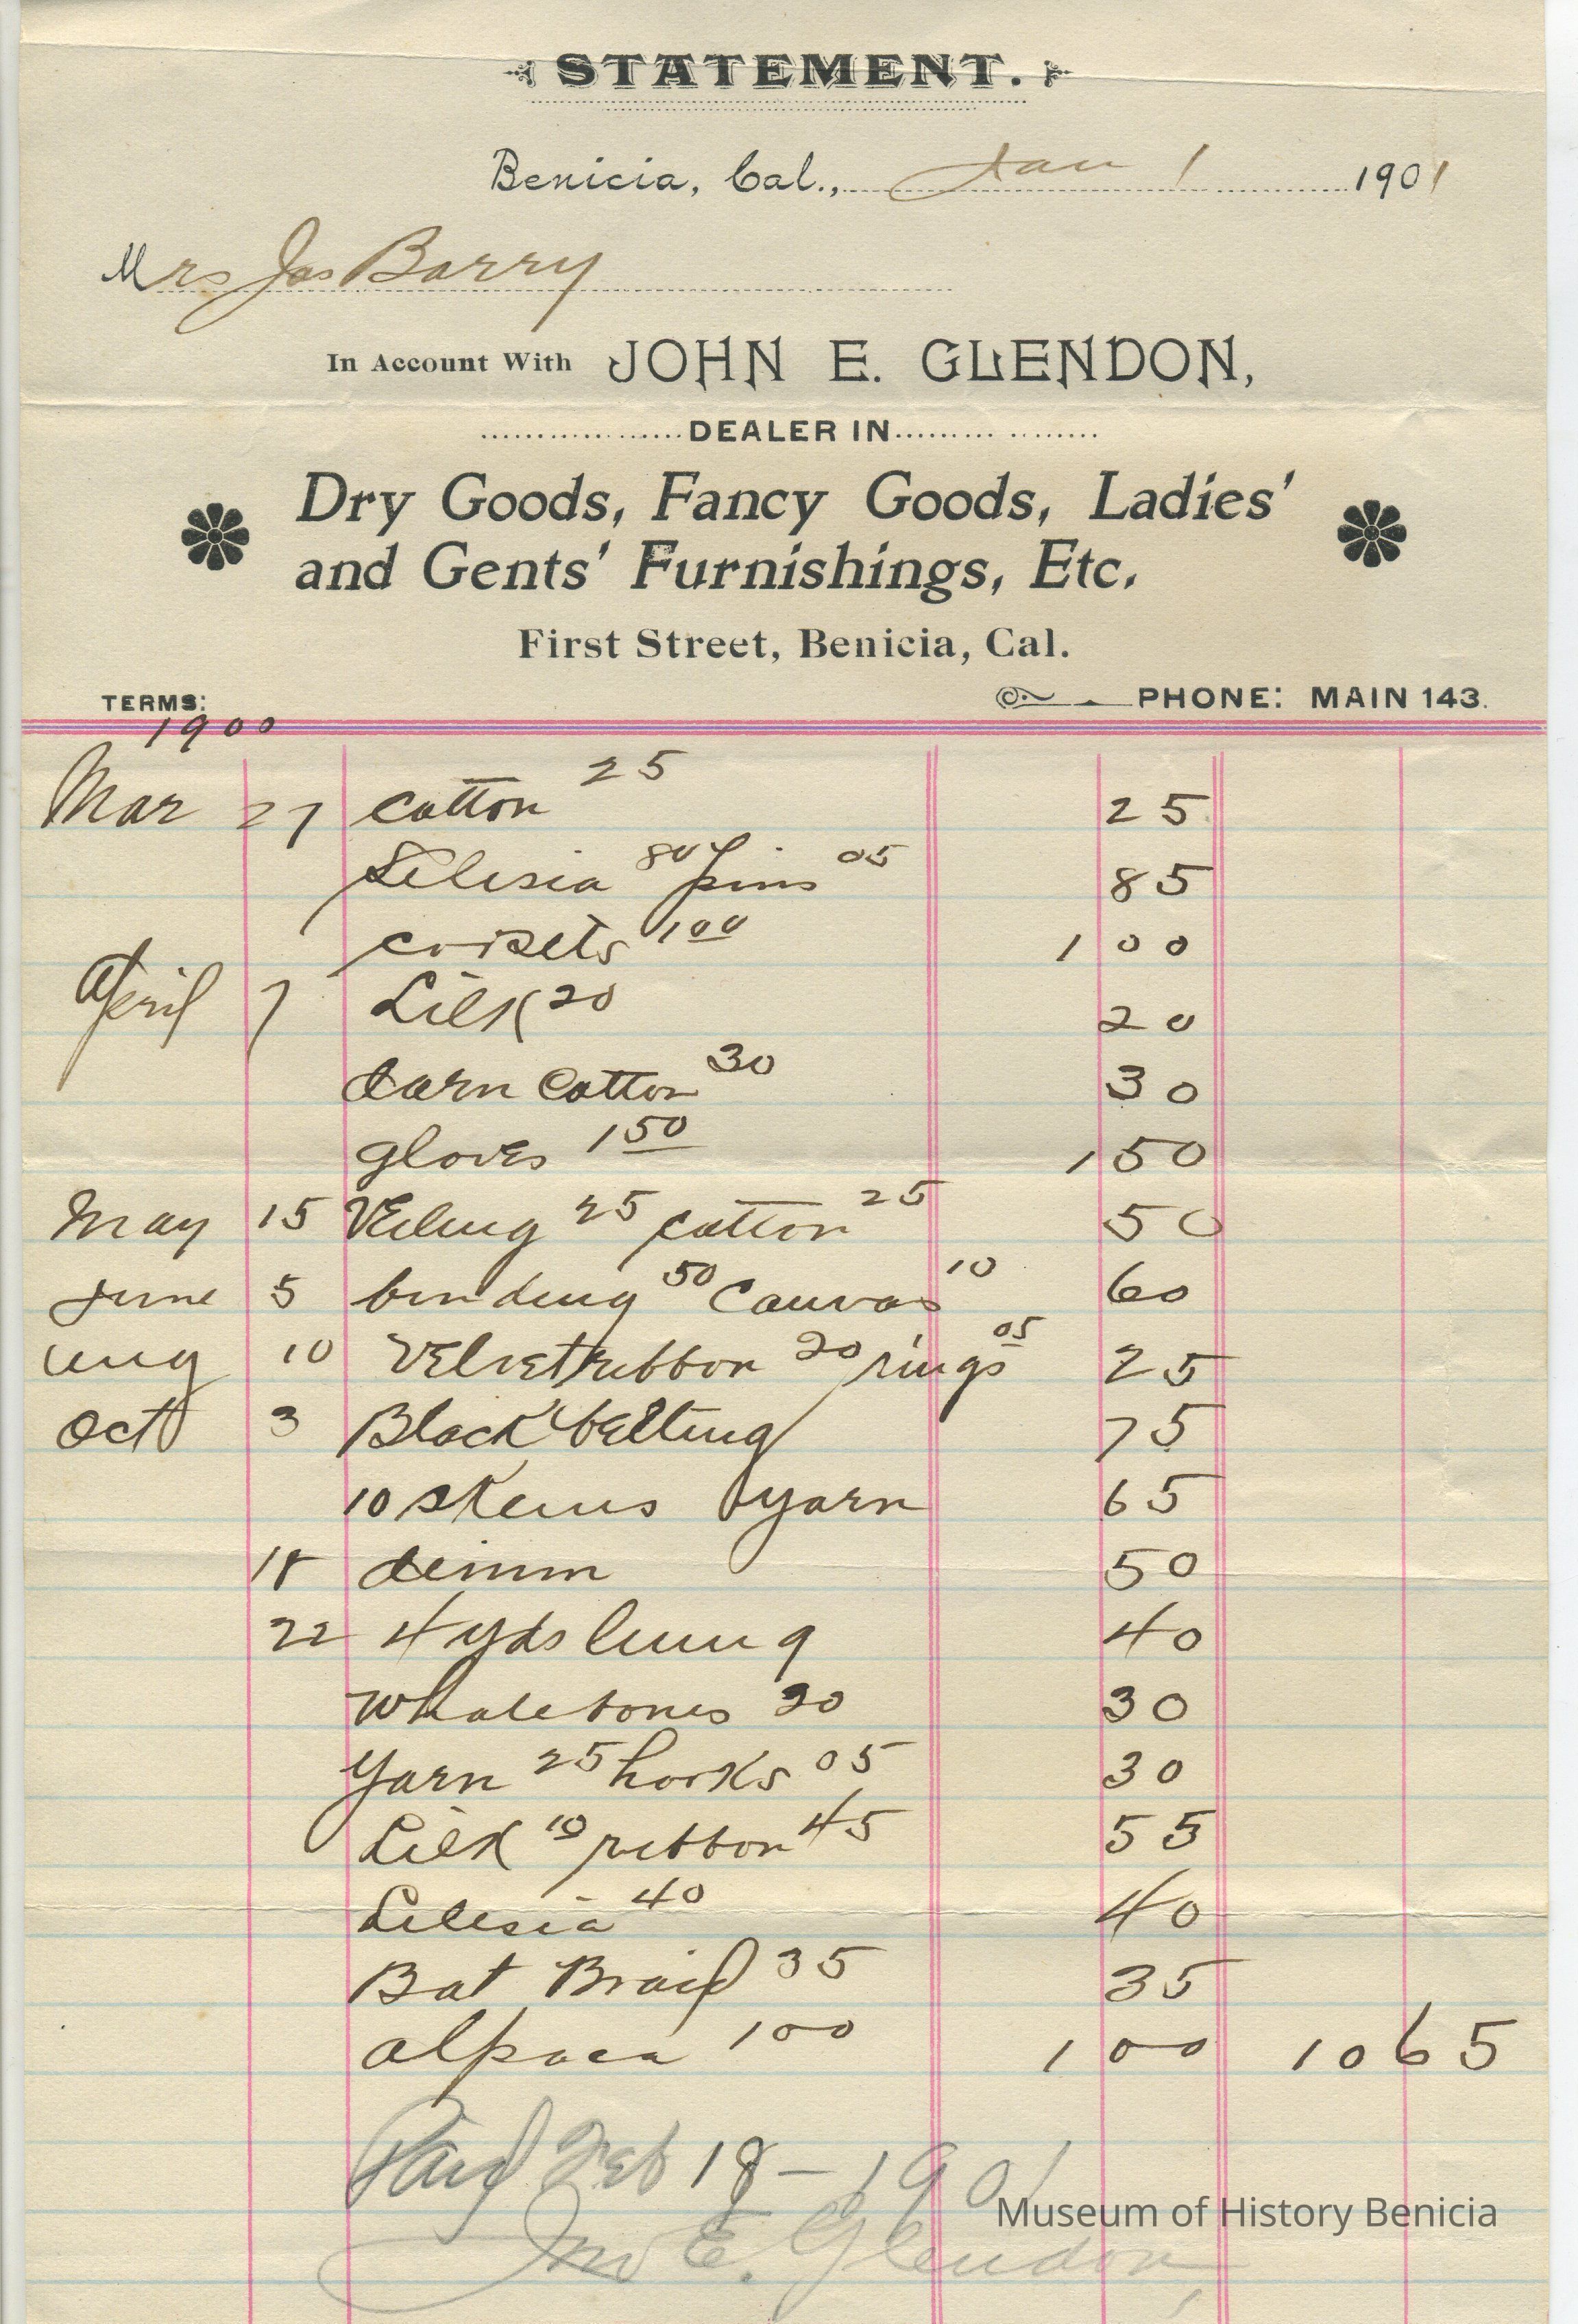 STATEMENT.
Benicia, Cal., Jan 1 1901
Mrs Jas Barry
In Account With JOHN E. GLENDON,
DEALER IN
Dry Goods, Fancy Goods, Ladies'
and Gents' Furnishings, Etc.
First Street, Benicia, Cal.
TERMS: PHONE: MAIN 143.
1900
Mar 27 Cotton 25 25
Silesia 80 pins 05 85
corsets 1 00 1 00
April 7 Silk 20 20
darn Cotton 30 30
gloves 1 50 1 50
May 15 Veiling 25 cotton 25 50
June 5 binding 50 Canvas 10 60
Aug 10 Velvet ribbon 20 rings 05 25
Oct 3 Black belting 75
10 skeins yarn 65
18 denim 50
22 4 yds lining 40
Whalebones 30 30
Yarn 25 hooks 05 30
Silk 10 ribbon 45 55
Silesia 40 40
Bat Braid 35 35
alpaca 1 00 1 00 10 65
Paid Feb 18 - 1901
Jno E. Glendon
Museum of History Benicia